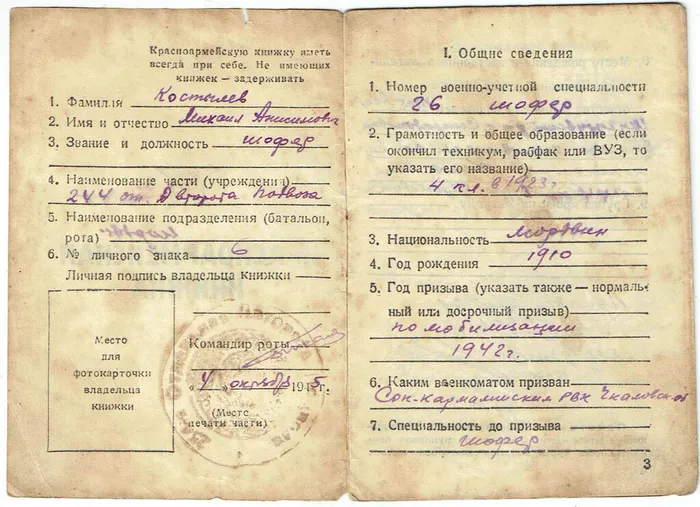 Красноармейскую книжку иметь
всегда при себе. Не имеющих
книжек — задерживать
1. Фамилия Костылев
2. Имя и отчество Михаил Анисимович
3. Звание и должность шофер
4. Наименование части (учреждения)
244 от. Авторота Подвоза
5. Наименование подразделения (батальон,
рота)
6. № личного знака 6
Личная подпись владельца книжки
Место
для
фотокарточки
владельца
книжки
Командир роты
„4" октября 1945 г.
(Место
печати части)
I. Общие сведения
1. Номер военно-учетной специальности
26 шофер
2. Грамотность и общее образование (если
окончил техникум, рабфак или ВУЗ, то
указать его название)
4 кл. в 1923 г.
3. Национальность Мордвин
4. Год рождения 1910
5. Год призыва (указать также — нормаль-
ный или досрочный призыв)
по мобилизации
1942 г.
6. Каким военкоматом призван
Сок-Кармалинским РВК Чкаловск. об
7. Специальность до призыва
шофер
3